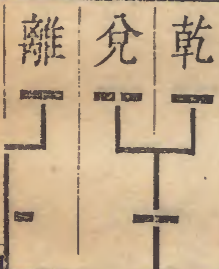 乾
兌
離